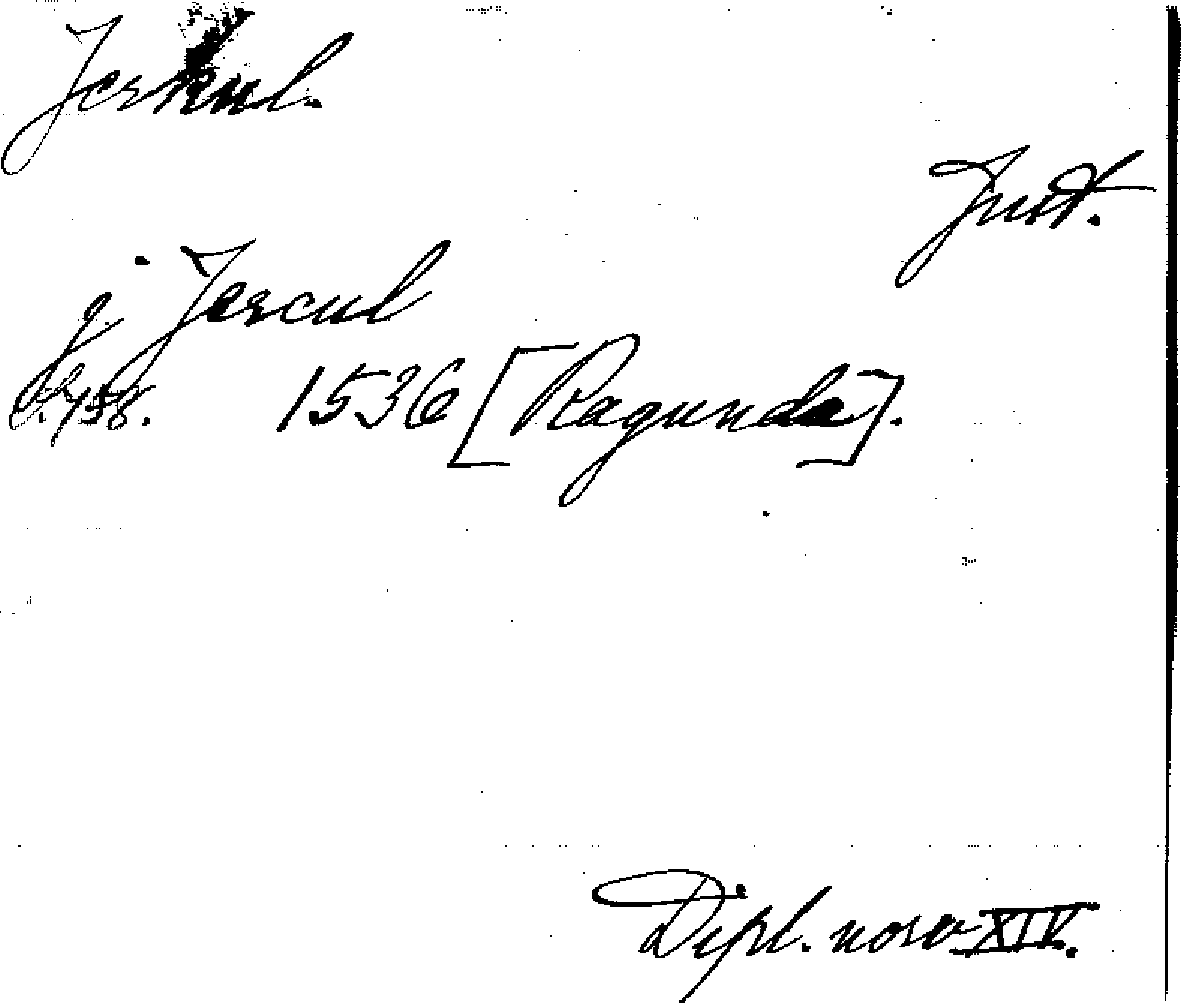 Jerkul.
Just.
j. Jercul
s. 458. 1536 [Ragunda].
Dipl. norv. XIV.